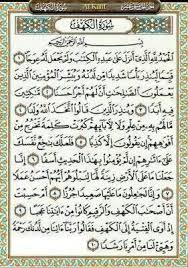 الجزء الخامس عشر Al-Kahf سورة الكهف
سُورَةُ الكَهْفِ
بِسْمِ اللَّهِ الرَّحْمَٰنِ الرَّحِيمِ
الْحَمْدُ لِلَّهِ الَّذِي أَنزَلَ عَلَىٰ عَبْدِهِ الْكِتَٰبَ وَلَمْ يَجْعَل لَّهُ عِوَجَا ۝١
قَيِّمًا لِّيُنذِرَ بَأْسًا شَدِيدًا مِّن لَّدُنْهُ وَيُبَشِّرَ الْمُؤْمِنِينَ الَّذِينَ
يَعْمَلُونَ الصَّٰلِحَٰتِ أَنَّ لَهُمْ أَجْرًا حَسَنًا ۝٢ مَّٰكِثِينَ
فِيهِ أَبَدًا ۝٣ وَيُنذِرَ الَّذِينَ قَالُوا اتَّخَذَ اللَّهُ وَلَدًا ۝٤
مَّا لَهُم بِهِ مِنْ عِلْمٍ وَلَا لِءَابَائِهِمْ كَبُرَتْ كَلِمَةً تَخْرُجُ مِنْ
أَفْوَٰهِهِمْ إِن يَقُولُونَ إِلَّا كَذِبًا ۝٥ فَلَعَلَّكَ بَٰخِعٌ
نَّفْسَكَ عَلَىٰ ءَاثَٰرِهِمْ إِن لَّمْ يُؤْمِنُوا بِهَٰذَا الْحَدِيثِ أَسَفًا ۝٦
إِنَّا جَعَلْنَا مَا عَلَى الْأَرْضِ زِينَةً لَّهَا لِنَبْلُوَهُمْ أَيُّهُمْ أَحْسَنُ عَمَلًا
۝٧ وَإِنَّا لَجَٰعِلُونَ مَا عَلَيْهَا صَعِيدًا جُرُزًا ۝٨ أَمْ حَسِبْتَ
أَنَّ أَصْحَٰبَ الْكَهْفِ وَالرَّقِيمِ كَانُوا مِنْ ءَايَٰتِنَا عَجَبًا ۝٩
إِذْ أَوَى الْفِتْيَةُ إِلَى الْكَهْفِ فَقَالُوا رَبَّنَا ءَاتِنَا مِن لَّدُنكَ رَحْمَةً
وَهَيِّئْ لَنَا مِنْ أَمْرِنَا رَشَدًا ۝١٠